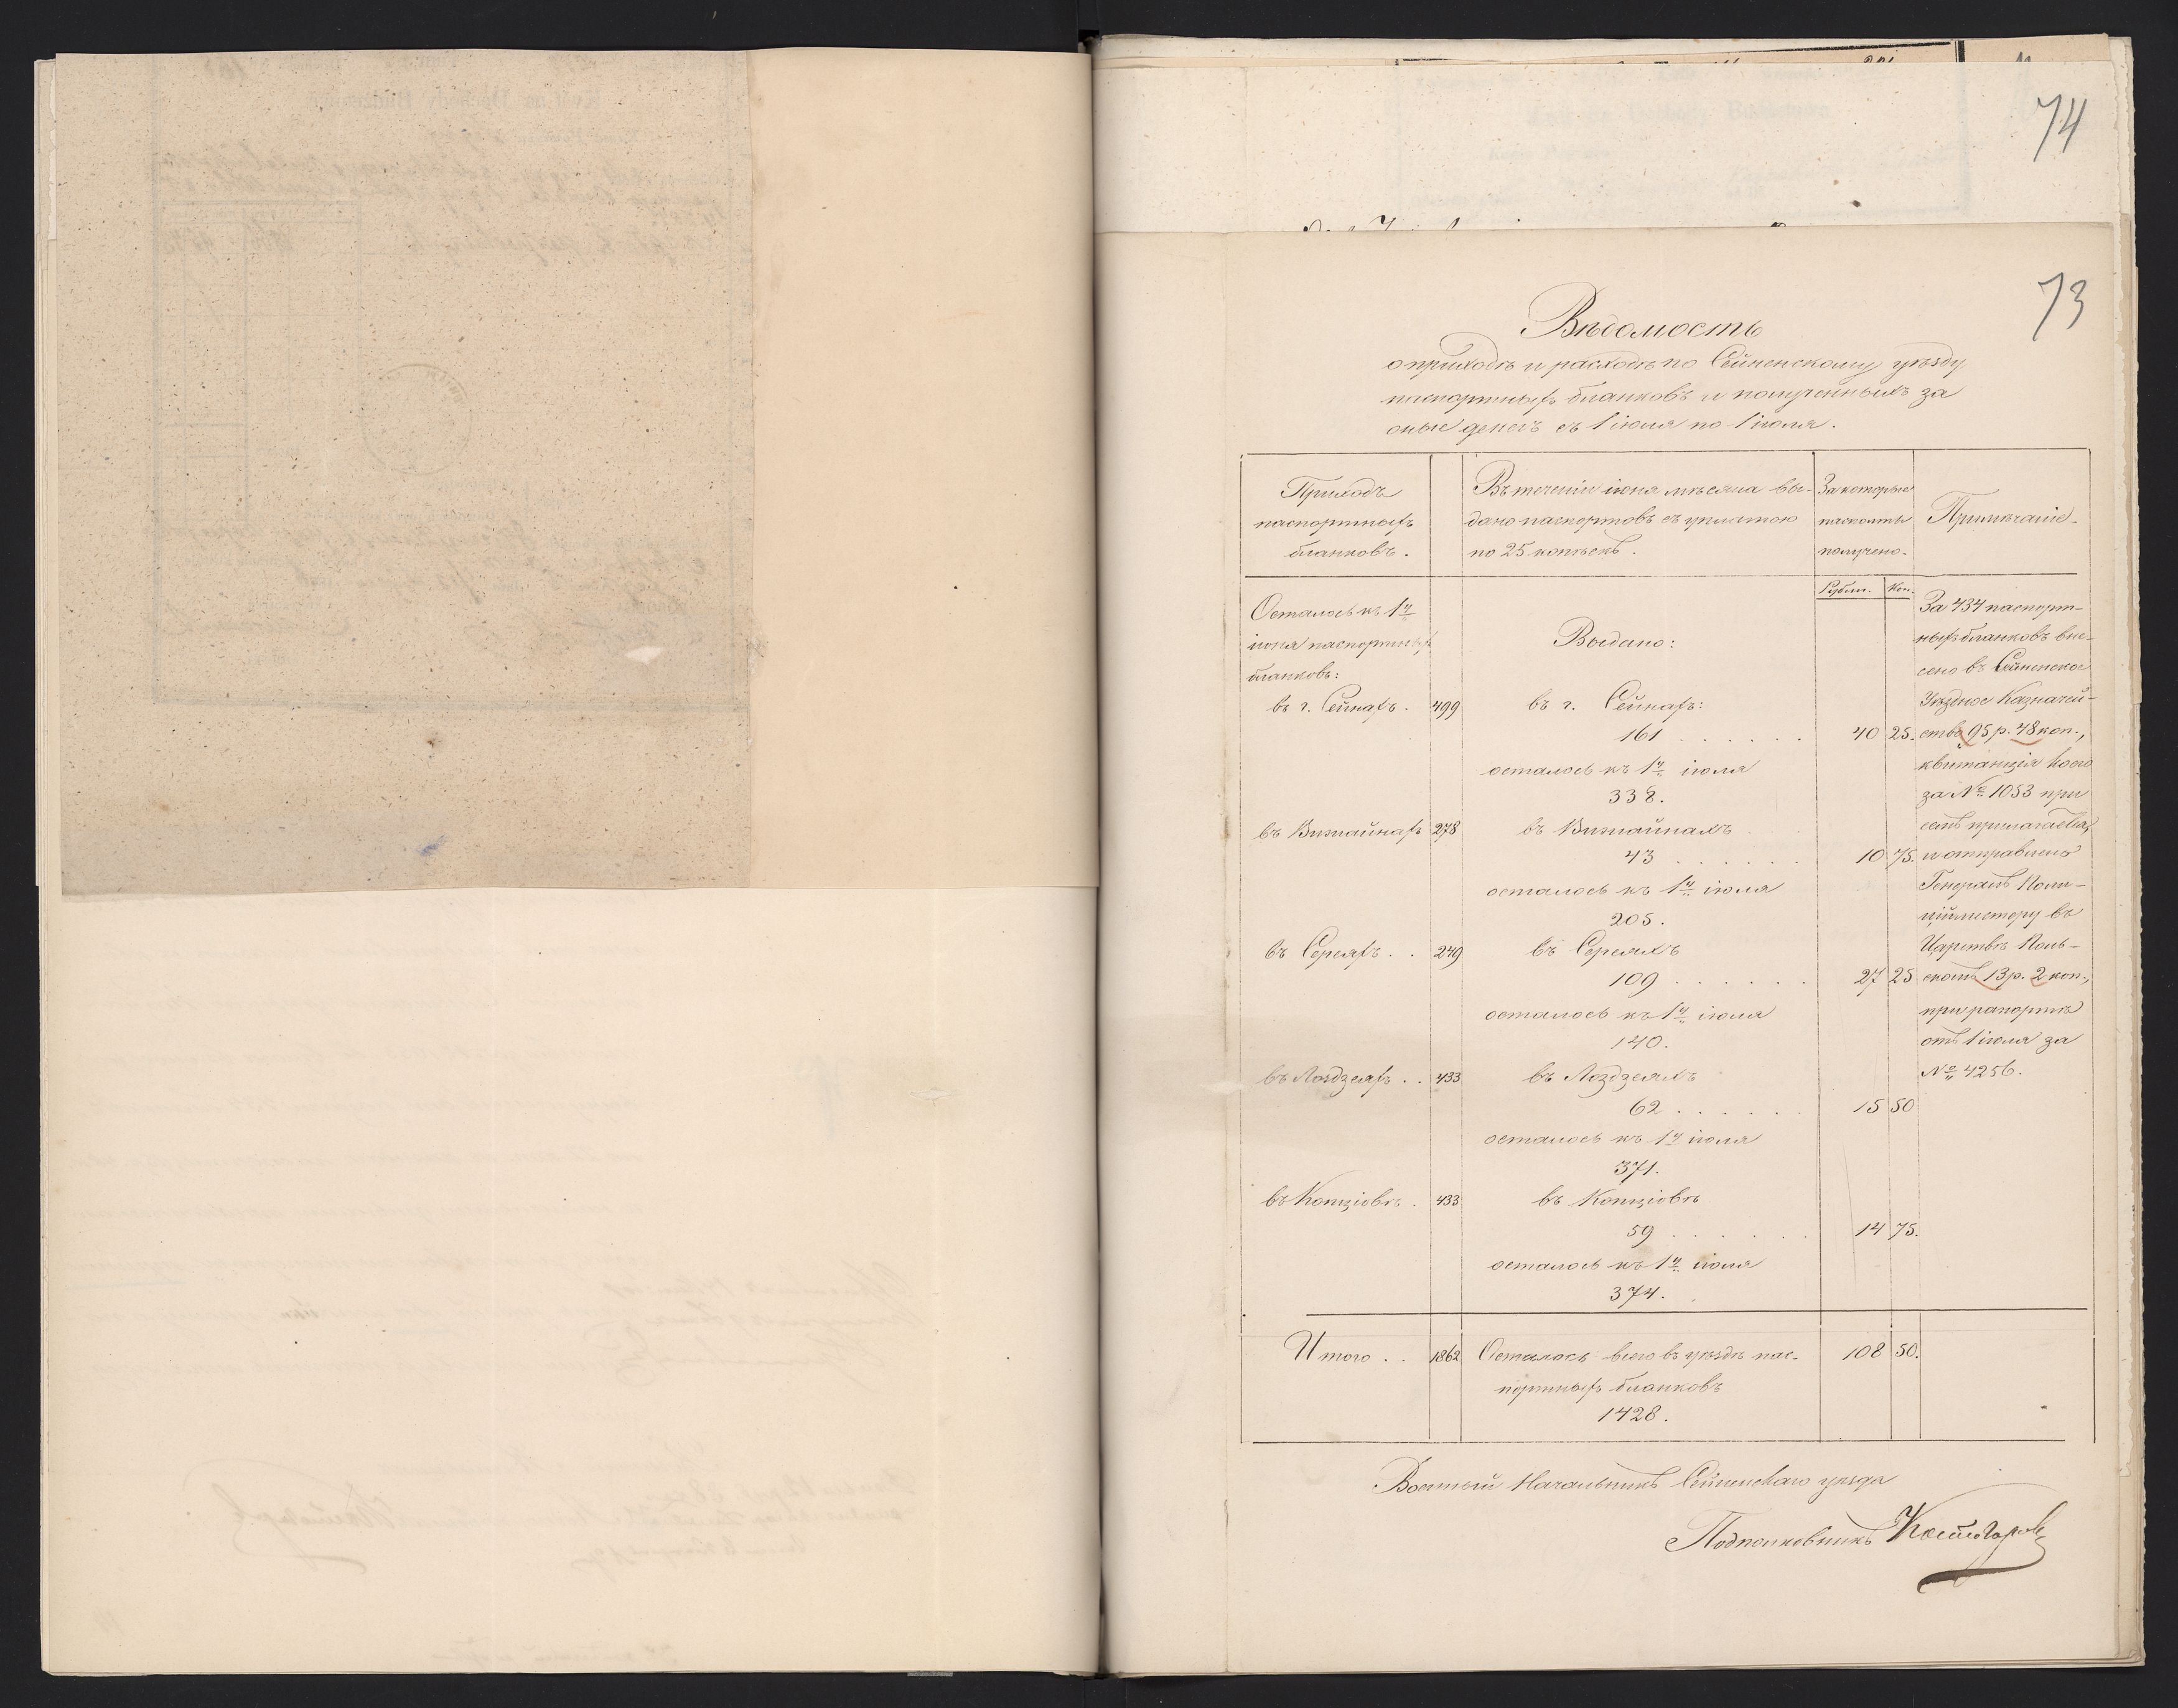 74
73
Вѣдомость
о приходѣ и расходѣ по Сейненскому уѣзду
паспортныхъ бланковъ и полученныхъ за
оные денегъ съ 1 іюня по 1 іюля.
Приходъ
паспортныхъ
бланковъ.
Въ теченіи іюня мѣсяца вы-
дано паспортовъ съ уплатою
по 25 копѣекъ.
За которые
паспорты
получено.
Примѣчаніе.
Рубли. Коп.
Осталось къ 1му
іюня паспортныхъ
бланковъ:
Выдано:
въ г. Сейнахъ. 499
въ г. Сейнахъ:
161 . . . . . . 40 25.
осталось къ 1му іюля
338.
въ Вижайнахъ 278
въ Вижайнахъ
43 . . . . . . 10 75.
осталось къ 1му іюля
205.
въ Сереяхъ . . 249
въ Сереяхъ
109 . . . . . . 27 25
осталось къ 1му іюля
140.
въ Лоздзеяхъ . . 433
въ Лоздзеяхъ
62 . . . . . . 15 50
осталось къ 1му іюля
371.
въ Копціовѣ . 433
въ Копціовѣ
59 . . . . . . 14 75.
осталось къ 1му іюля
374.
За 434 паспорт-
ныхъ бланковъ вне-
сено въ Сейненское
Уѣздное Казначей-
ство 95 р. 48 коп.,
квитанція коего
за № 1053 при
семъ прилагается,
и отправлено
Генералъ Поли-
ціймейстеру въ
Царствѣ Поль-
скомъ 13 р. 2 коп.,
при рапортѣ
отъ 1 іюля за
№ 4256.
Итого . . 1862
Осталось всего въ уѣздѣ пас-
портныхъ бланковъ
1428.
108 50.
Военный Начальникъ Сейненскаго уѣзда
Подполковникъ